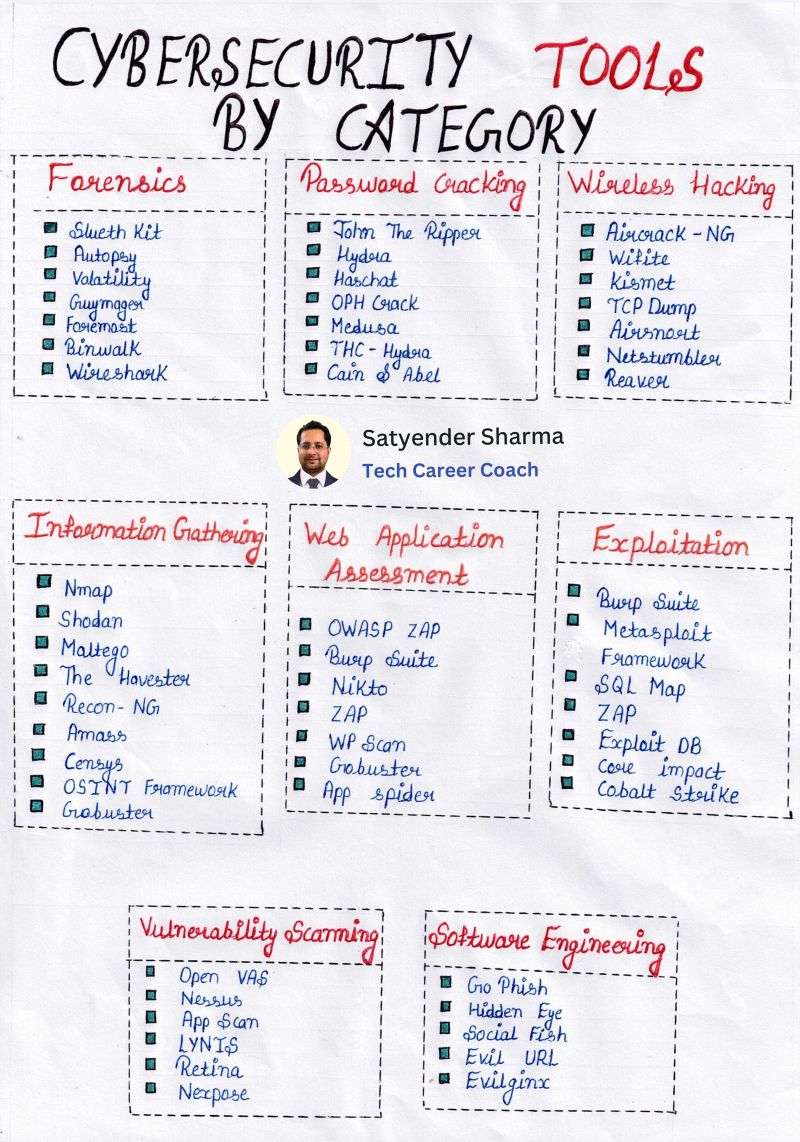 CYBERSECURITY TOOLS
BY CATEGORY
Forensics
Slueth Kit
Autopsy
Volatility
Guymager
Foremost
Binwalk
Wireshark
Password Cracking
John The Ripper
Hydra
Haschat
OPH Crack
Medusa
THC - Hydra
Cain & Abel
Wireless Hacking
Aircrack - NG
Wifite
Kismet
TCP Dump
Airsnort
Netstumbler
Reaver
Satyender Sharma
Tech Career Coach
Information Gathering
Nmap
Shodan
Maltego
The Hovester
Recon- NG
Amass
Censys
OSINT Framework
Gobuster
Web Application
Assessment
OWASP ZAP
Burp Suite
Nikto
ZAP
WP Scan
Gobuster
App spider
Exploitation
Burp Suite
Metasploit
Framework
SQL Map
ZAP
Exploit DB
Core impact
Cobalt Strike
Vulnerability Scanning
Open VAS
Nessus
App Scan
LYNIS
Retina
Nexpose
Software Engineering
Go Phish
Hidden Eye
Social Fish
Evil URL
Evilginx